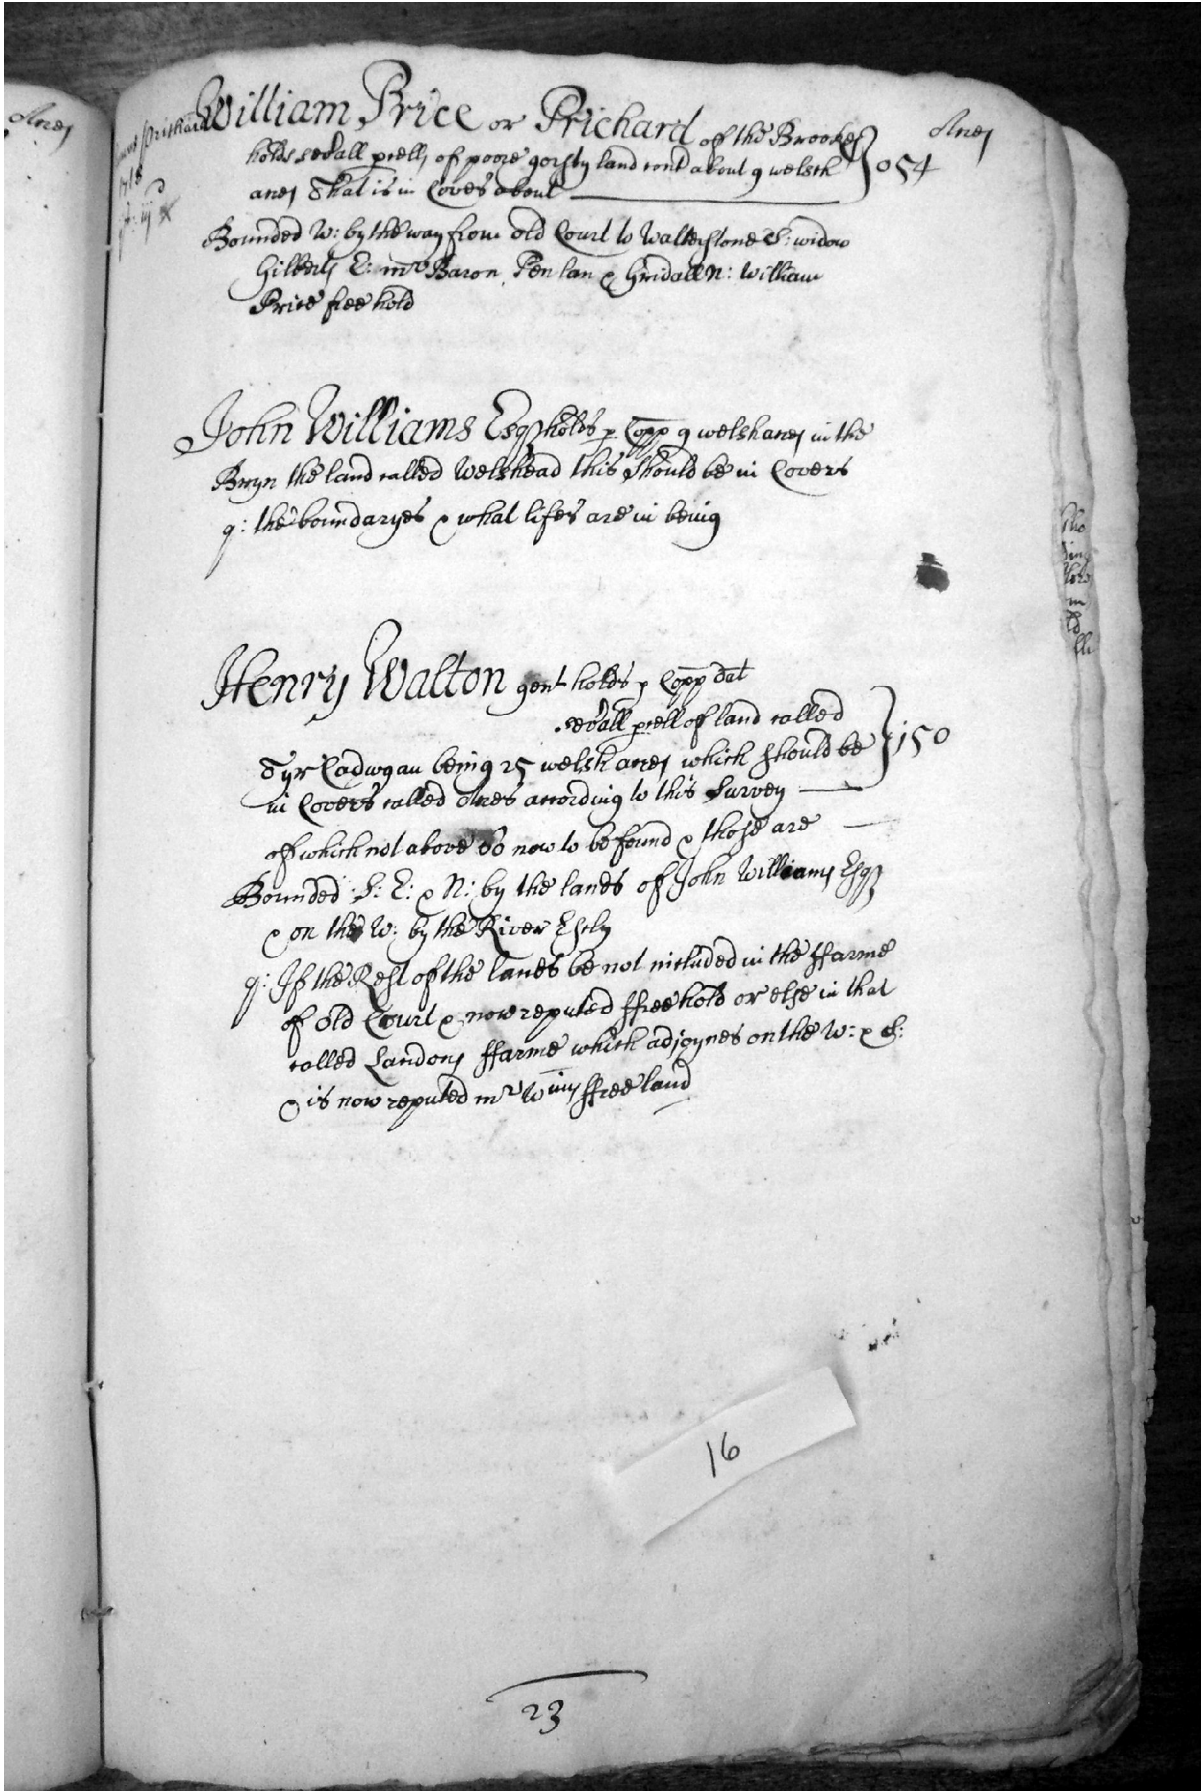 Acres
William Price or Prichard of the Brooke
Acres
Prichard
1718
holds sevall pcells of poore gorsty land cont about 9 welsh
054
acres That is in Covers about
Bounded W: by the way from Old Court to Walterstone S: widow
Gilberts E: mr Baron Pen lan & N: William
Price free hold
John Williams Esqr holds p Copp 9 welsh acres in the
Bryn the land called Welshead this should be in Covers
q: the boundaryes & what lifes are in being
Henry Walton gent holds p Copp dat
sevall pcell of land called
Tyr Cadwgan being 25 welsh acres which should be
150
in Covers called Acres according to this Survey
of which not above 60 now to be found & those are
Bounded S: E: & N: by the lands of John Williams Esqr
& on the W: by the River Escly
q: If the Rest of the lands be not included in the ffarme
of Old Court & now reputed ffree hold or else in that
called Landons ffarme which adjoynes on the W: & S:
& is now reputed mr Wms ffree land
16
23